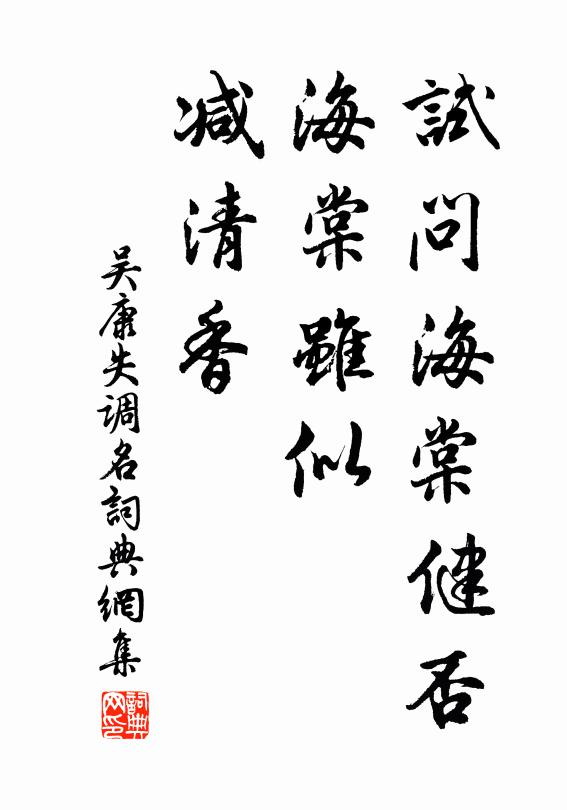 試問海棠健否
海棠雖似
减清香
吴康失调名詞典網集
詞典网印